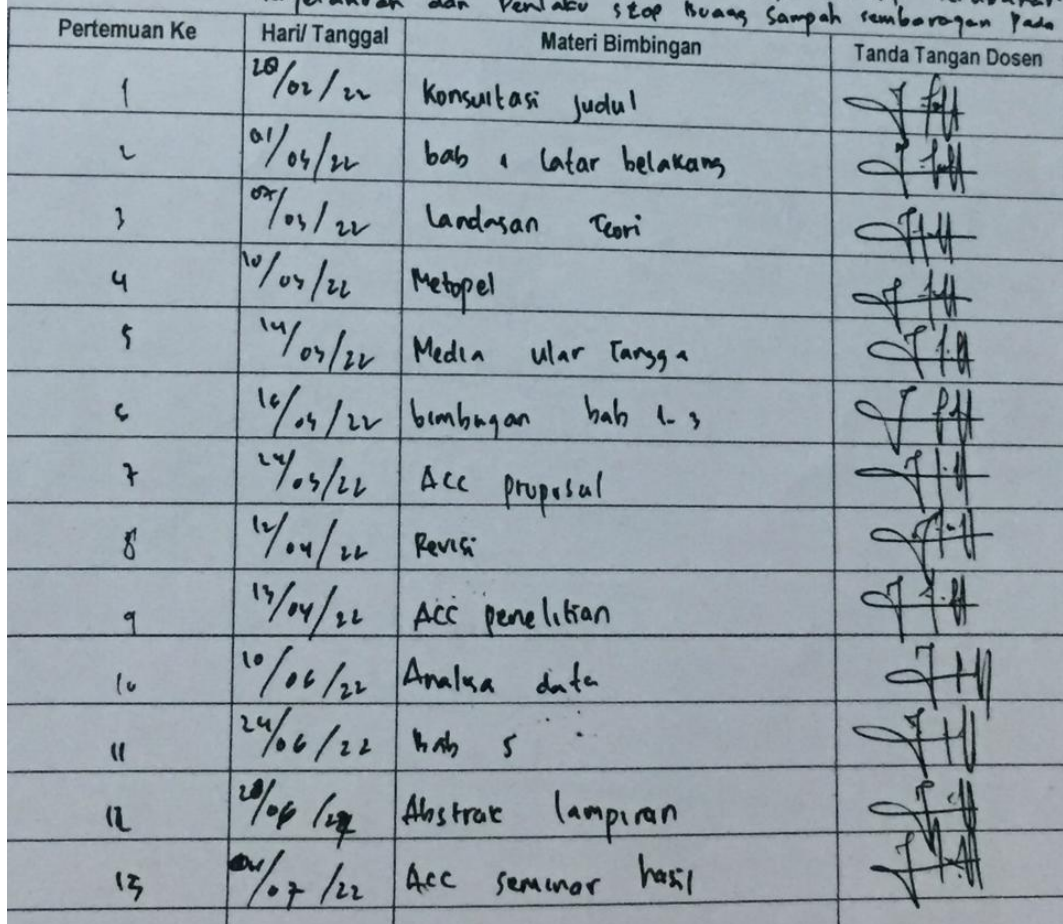 dan Perilaku stop Buang Sampah sembarangan Pada
Pertemuan Ke Hari/ Tanggal Materi Bimbingan Tanda Tangan Dosen
1 28/02/22 Konsultasi Judul
2 01/03/22 bab 1 latar belakang
3 07/03/22 Landasan Teori
4 10/03/22 Metopel
5 14/03/22 Media ular Tangga
6 16/03/22 bimbingan bab 1-3
7 24/03/22 ACC proposal
8 12/04/22 Revisi
9 13/04/22 ACC penelitian
10 10/06/22 Analisa data
11 24/06/22 bab 5
12 28/06/22 Abstrak lampiran
13 /07/22 Acc seminar hasil